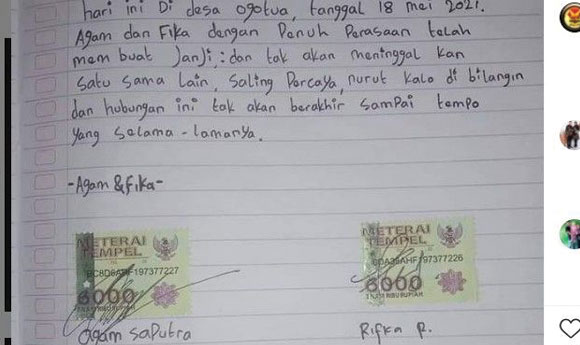 hari ini Di desa ogotua, tanggal 18 mei 2021.
Agam dan Fika dengan Penuh Perasaan telah
mem buat Janji, : dan tak akan meninggal kan
satu sama lain, saling Percaya, nurut kalo di bilangin
dan hubungan ini tak akan berakhir sampai tempo
yang selama-lamanya.
-Agam & Fika-
METERAI
TEMPEL
197377227
6000
ENAM RIBU RUPIAH
Agam Saputra
METERAI
TEMPEL
197377226
6000
ENAM RIBU RUPIAH
Rifka R.